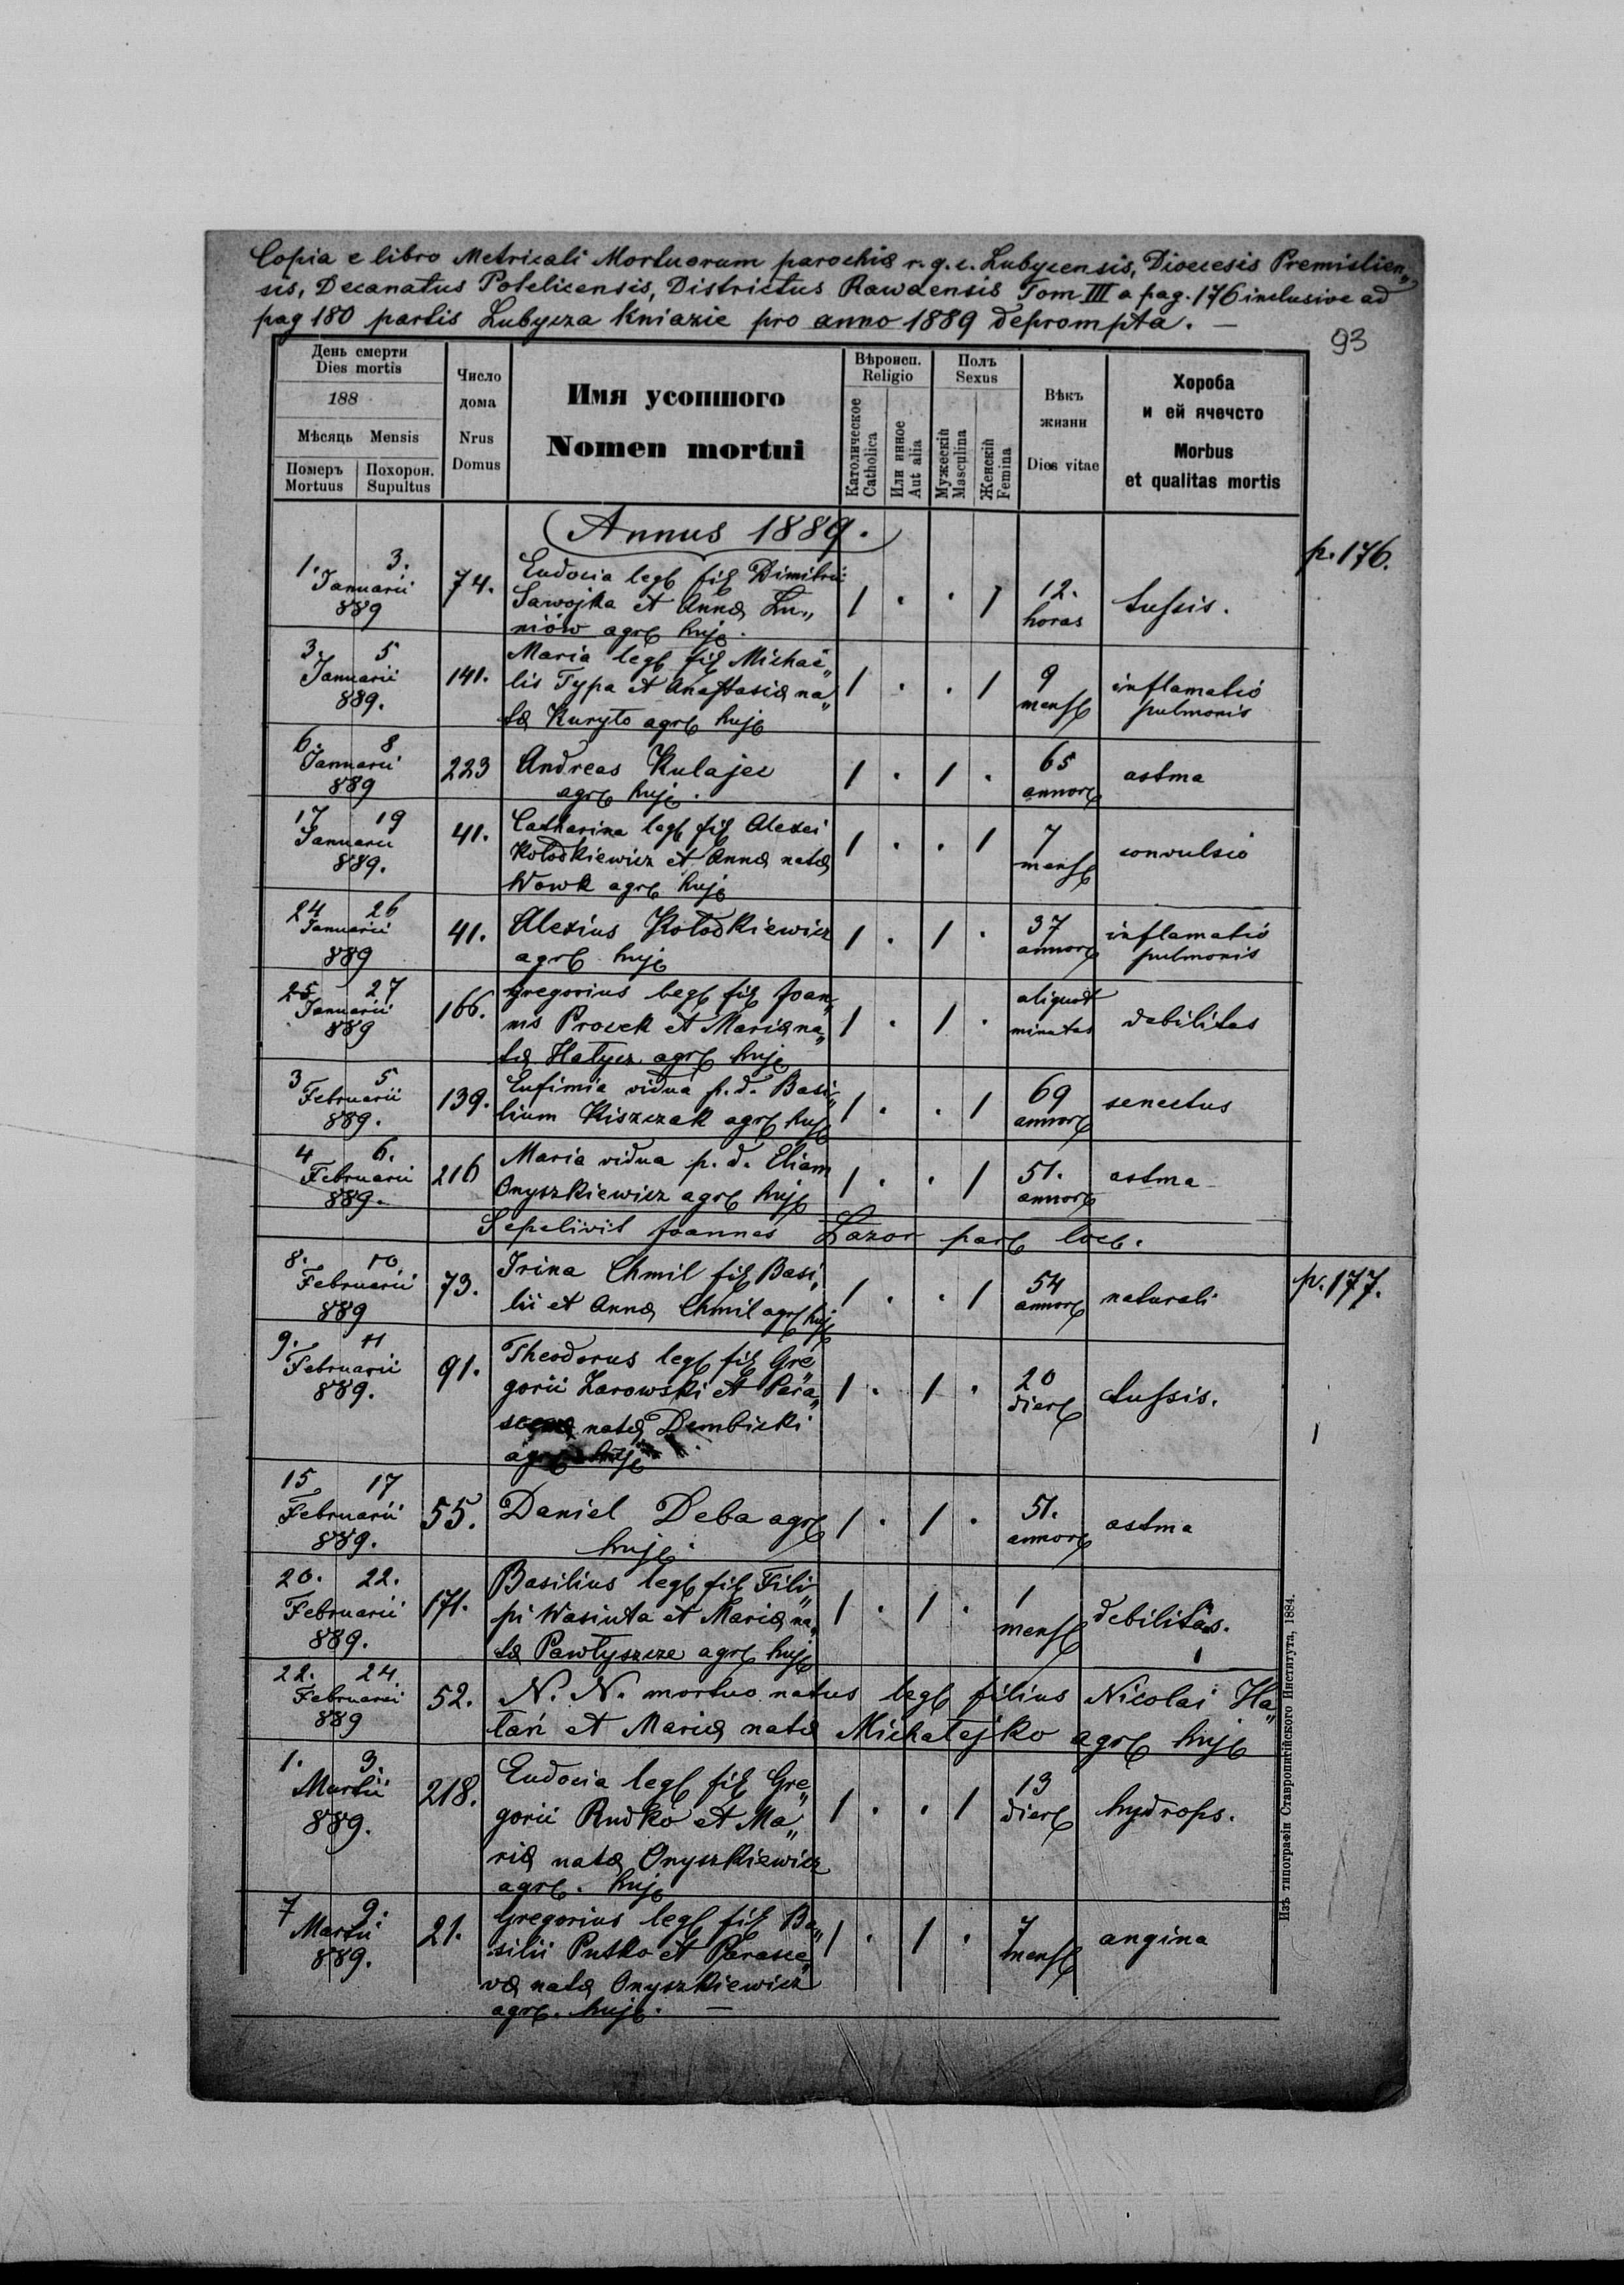 Copia e libro Metricali Mortuorum parochiæ r. g. c. Lubycensis, Diœcesis Premislien„
sis, Decanatus Potelicensis, Districtus Rawaensis Tom III a pag. 176 inclusive ad
pag 180 partis Lubycza Kniazie pro anno 1889 deprompta. —
93
День смерти
Dies mortis
188
Мѣсяць Mensis
Померъ Mortuus
Похорон. Supultus
Число дома
Nrus Domus
Имя усопшого
Nomen mortui
Вѣроисп.
Religio
Католическое Catholica
Или инное Aut alia
Полъ
Sexus
Мужескій Masculina
Женскій Femina
Вѣкъ жизни
Dies vitae
Хороба
и ей ячечсто
Morbus
et qualitas mortis
Annus 1889.
p. 176.
1. 3. Januarii 889
74.
Eudocia leg fil Dimitrii
Sawojka et Annæ Lu„
niów agr huj.
1 . . 1
12. horas
tussis.
3. 5 Januarii 889.
141.
Maria leg fil Michaë„
lis Typa et Anastasiæ na„
tæ Kuryło agr huj
1 . . 1
9 mens
inflamatió pulmonis
6. 8 Januarii 889
223
Andreas Kulajec
agr huj.
1 . 1 .
65 annor
astma
17 19 Januarii 889.
41.
Catharina leg fil Alexei
Kołodkiewicz et Annæ natæ
Wowk agr huj
1 . . 1
7 mens
convulsió
24 26 Januarii 889
41.
Alexius Kołodkiewicz
agr huj
1 . 1 .
37 annor
inflamatió pulmonis
25 27 Januarii 889
166.
Gregorius leg fil Joan„
nis Procek et Mariæ na„
tæ Hałycz agr huj
1 . 1 .
aliquot minutas
debilitas
3 5 Februarii 889.
139.
Eufimia vidua p. d. Basi„
lium Kiszczak agr huj
1 . . 1
69 annor
senectus
4 6. Februarii 889.
216
Maria vidua p. d. Eliam
Onyszkiewicz agr huj
1 . . 1
51. annor
astma
Sepelivit Joannes Lazor par loc.
p. 177.
8. 10 Februarii 889
73.
Irina Chmil fil Basi„
lii et Annæ Chmil agr huj
1 . . 1
54 annor
naturali
9. 11 Februarii 889.
91.
Theodorus leg fil Gre„
gorii Zarowski et Para„
natæ Dembicki
agr huj
1 . 1 .
20 dier
tussis.
15 17 Februarii 889.
55.
Daniel Deba agr
huj.
1 . 1 .
51. annor
astma
20. 22. Februarii 889.
171.
Basilius leg fil Fili„
pi Wasiuta et Mariæ na„
tæ Pawłyszcze agr huj
1 . 1 .
1 mens
debilitas.
22. 24. Februarii 889
52.
N. N. mortuo natus leg filius Nicolai Ha„
łań et Mariæ natæ Michałejko agr huj
1. 3. Martii 889.
218.
Eudocia leg fil Gre„
gorii Rudko et Ma„
riæ natæ Onyszkiewicz
agr. huj
1 . . 1
13 dier
hydrops.
7 9. Martii 889.
21.
Gregorius leg fil Ba„
silii Putko et Parasce„
væ natæ Onyszkiewicz
agr. huj. —
1 . 1 .
7 mens
angina
Изъ типографіи Ставропигійского Института, 1884.